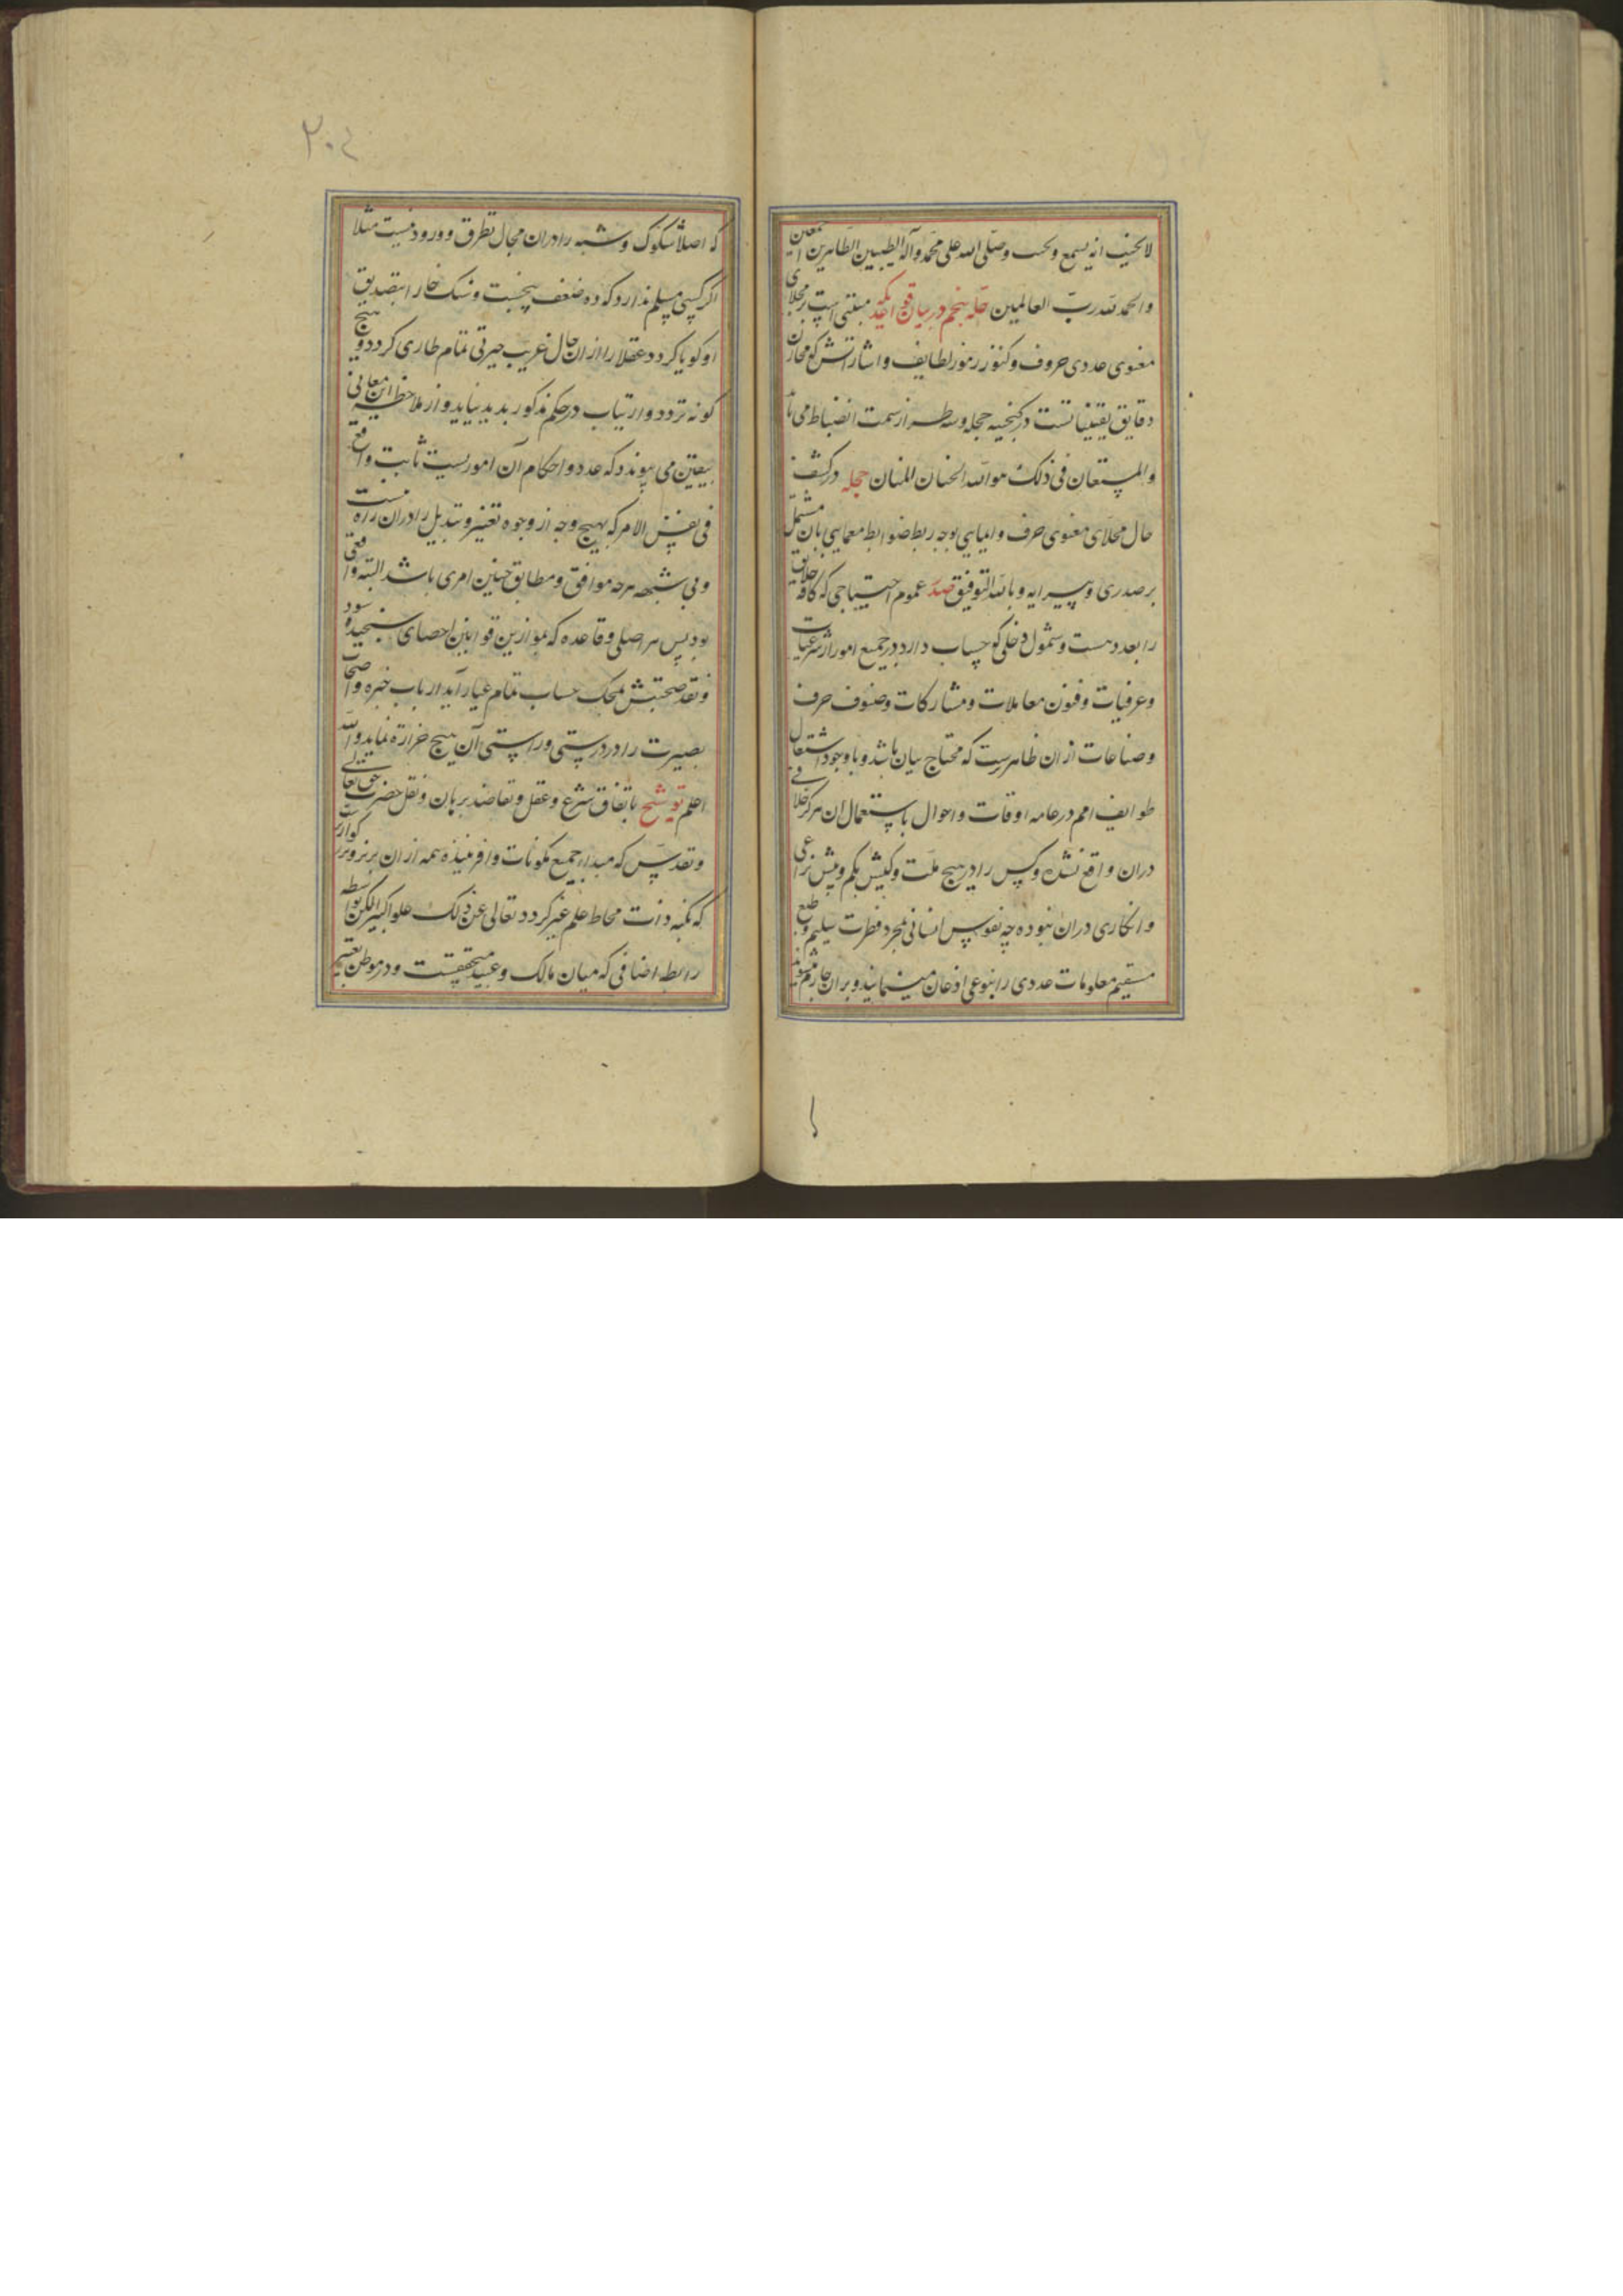 لایخیب انه یسمع ویجیب وصلّی الله علی محمّد وآله الطیبین الطّاهرین اجمعین
والحمد لله ربّ العالمین حلّه پنجم در بیان قواعدی که مبتنی است بر مجلای
معنوی عددی حروف وکنوز رموز لطایف واشاراتش که مخازن
دقایق یقینیاتست در گنجینه حجله وسه طراز سمت انضباط می یابد
والمستعان فی ذلک هو الله الحنان المنان حجله در کشف
حال مجلای معنوی حرف وایمایی بوجه ربط ضوابط معمایی بان مشتمل
بر صدری وپیرایه وبالله التوفیق صدر عموم احتیاجی که کافه خلایق
را بعدد هست وشمول دخلی که حساب دارد در جمیع امور از شرعیات
وعرفیات وفنون معاملات ومشارکات وصنوف حرف
وصناعات از ان ظاهرترست که محتاج بیان باشد وباوجود اشتغال
طوایف امم در عامه اوقات واحوال باستعمال ان هرگز خلافی
دران واقع نشده وکس را در هیچ ملّت وکیش بکم وبیش نزاعی
وانکاری دران نبوده چه نفوس انسانی بمجرد فطرت سلیم وطبع
مستقیم معلومات عددی را بنوعی اذعان مینمایند وبران جازم میشوند
۲۰۴
که اصلا شکوک وشبه را دران مجال تطرق وورود نیست مثلا
اگر کسی مسلم ندارد که ده ضعف پنجست وسنک خارا بتصدیق
او کویا کردد عقلا را از ان حال غریب حیرتی تمام طاری کردد وهیچ
کونه تردد وارتیاب در حکم مذکور بدید نیاید واز ملاحظه این معانی
بیقین می پیوندد که عدد واحکام آن امور یست ثابت واقع
فی نفس الامر که بهیچ وجه از وجوه تغییر وتبدیل را دران راه نیست
وبی شبهه هرچه موافق ومطابق چنین امری باشد البته واقعی
بود پس هر اصلی وقاعده که بموازین قوانین احصای سنجیده شود
ونقد صحتش بمحک حساب تمام عیار آید ارباب خبره واصحاب
بصیرت را در درستی وراستی آن هیچ حزازة نماید والله
اعلم توشیح باتفاق شرع وعقل وتعاضد برهان ونقل حضرت حق تعالی
وتقدس که مبداء جمیع مکونات وافریننده همه از ان برتر وبزرگوارترست
که بکنه ذات محاط علم غیر کردد تعالی عن ذلک علوا کبیرا لکن بواسطه
رابطه اضافی که میان مالک وعبید متحققست ودر موطن